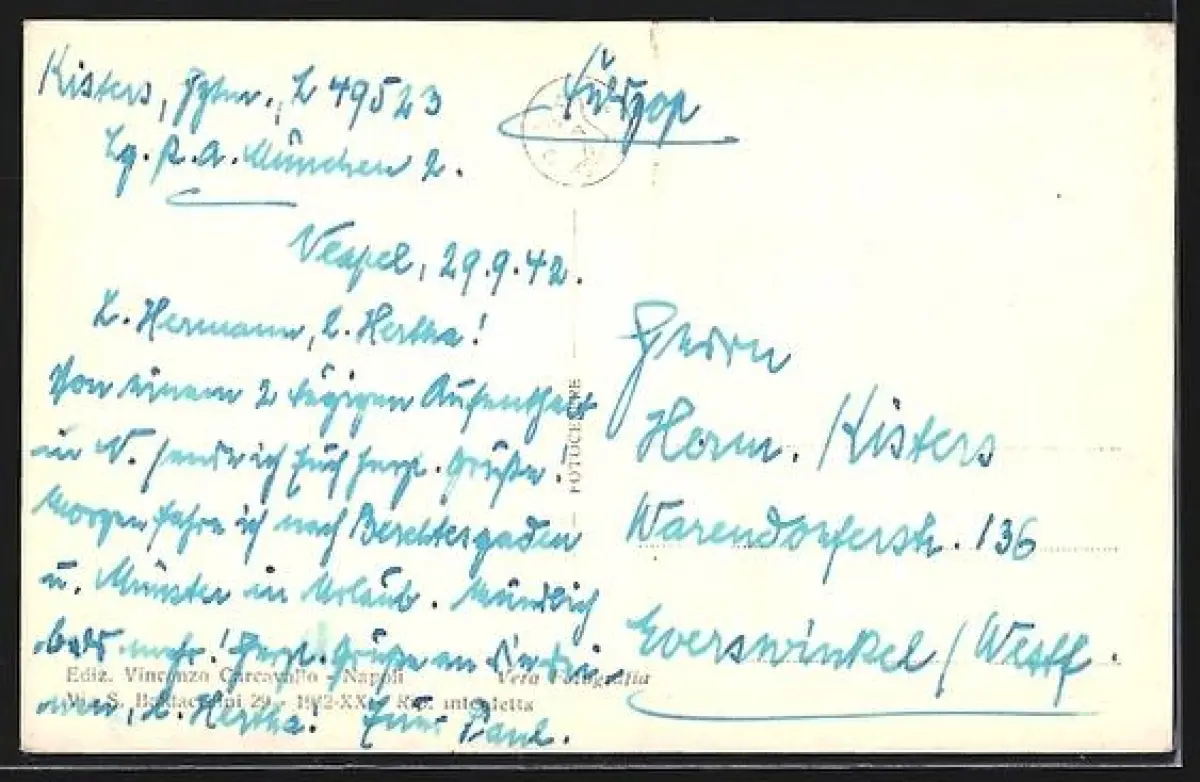 Kisters, Hptm., L 49523
Lg. P. A. München 2.
Feldpost
Neapel, 29.9.42.
L. Hermann, l. Hertha!
Von einem 2 tägigen Aufenthalt
in N. sende ich Euch herzl. Grüße.
Morgen fahre ich nach Berchtesgaden
u. Münster in Urlaub. Mündlich
bald mehr! Herzl. Grüße an die
l. Hertha! Euer Paul.
Herrn
Herm. Kisters
Warendorferstr. 136
Everswinkel / Westf.
FOTOCELERE
Ediz. Vincenzo Carcavallo - Napoli
Vera Fotografia
Via S. 29 - 1942-XX - Rip. interdetta